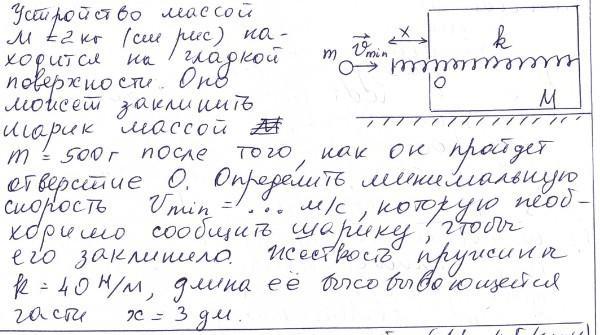 Устройство массой
M = 2 кг (см рис) на-
ходится на гладкой
поверхности. Оно
может заклинить
шарик массой
m = 500 г после того, как он пройдет
отверстие O. Определить минимальную
скорость Vmin = ... м/с, которую необ-
ходимо сообщить шарику, чтобы
его заклинило. Жесткость пружины
k = 40 Н/м, длина её высовывающейся
части x = 3 дм.
m v⃗min x k
O
M